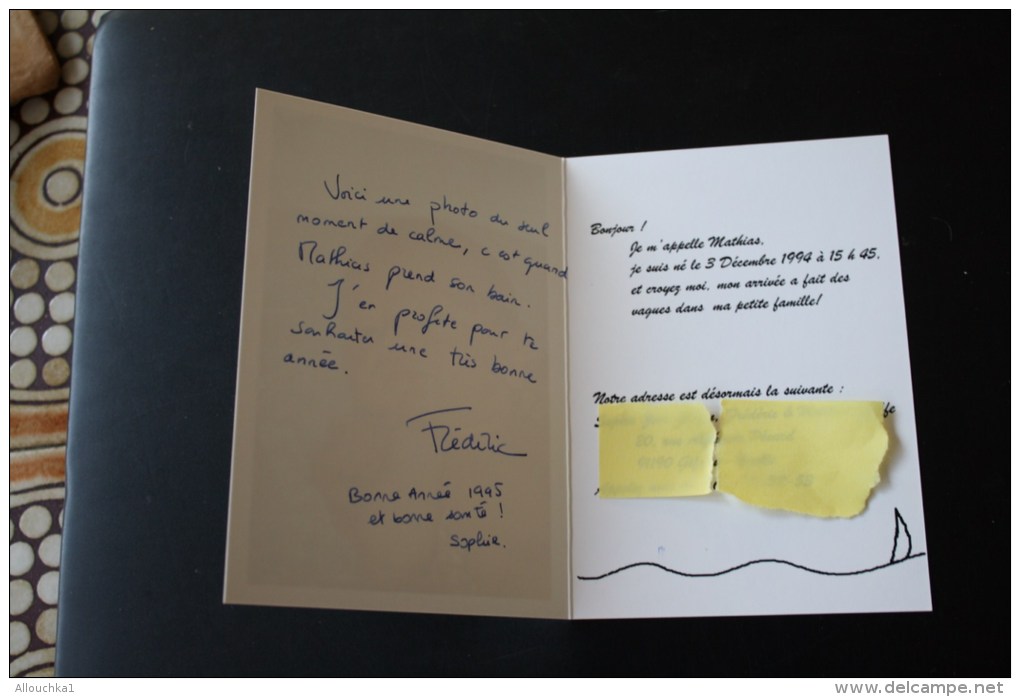 Voici une photo du seul
moment de calme, c'est quand
Mathias prend son bain.
J'en profite pour te
souhaiter une très bonne
année.
Frédéric
Bonne Année 1995
et bonne santé !
Sophie.
Bonjour !
Je m'appelle Mathias,
je suis né le 3 Décembre 1994 à 15 h 45,
et croyez moi, mon arrivée a fait des
vagues dans ma petite famille!
Notre adresse est désormais la suivante :
Allouchka1
www.delcampe.net